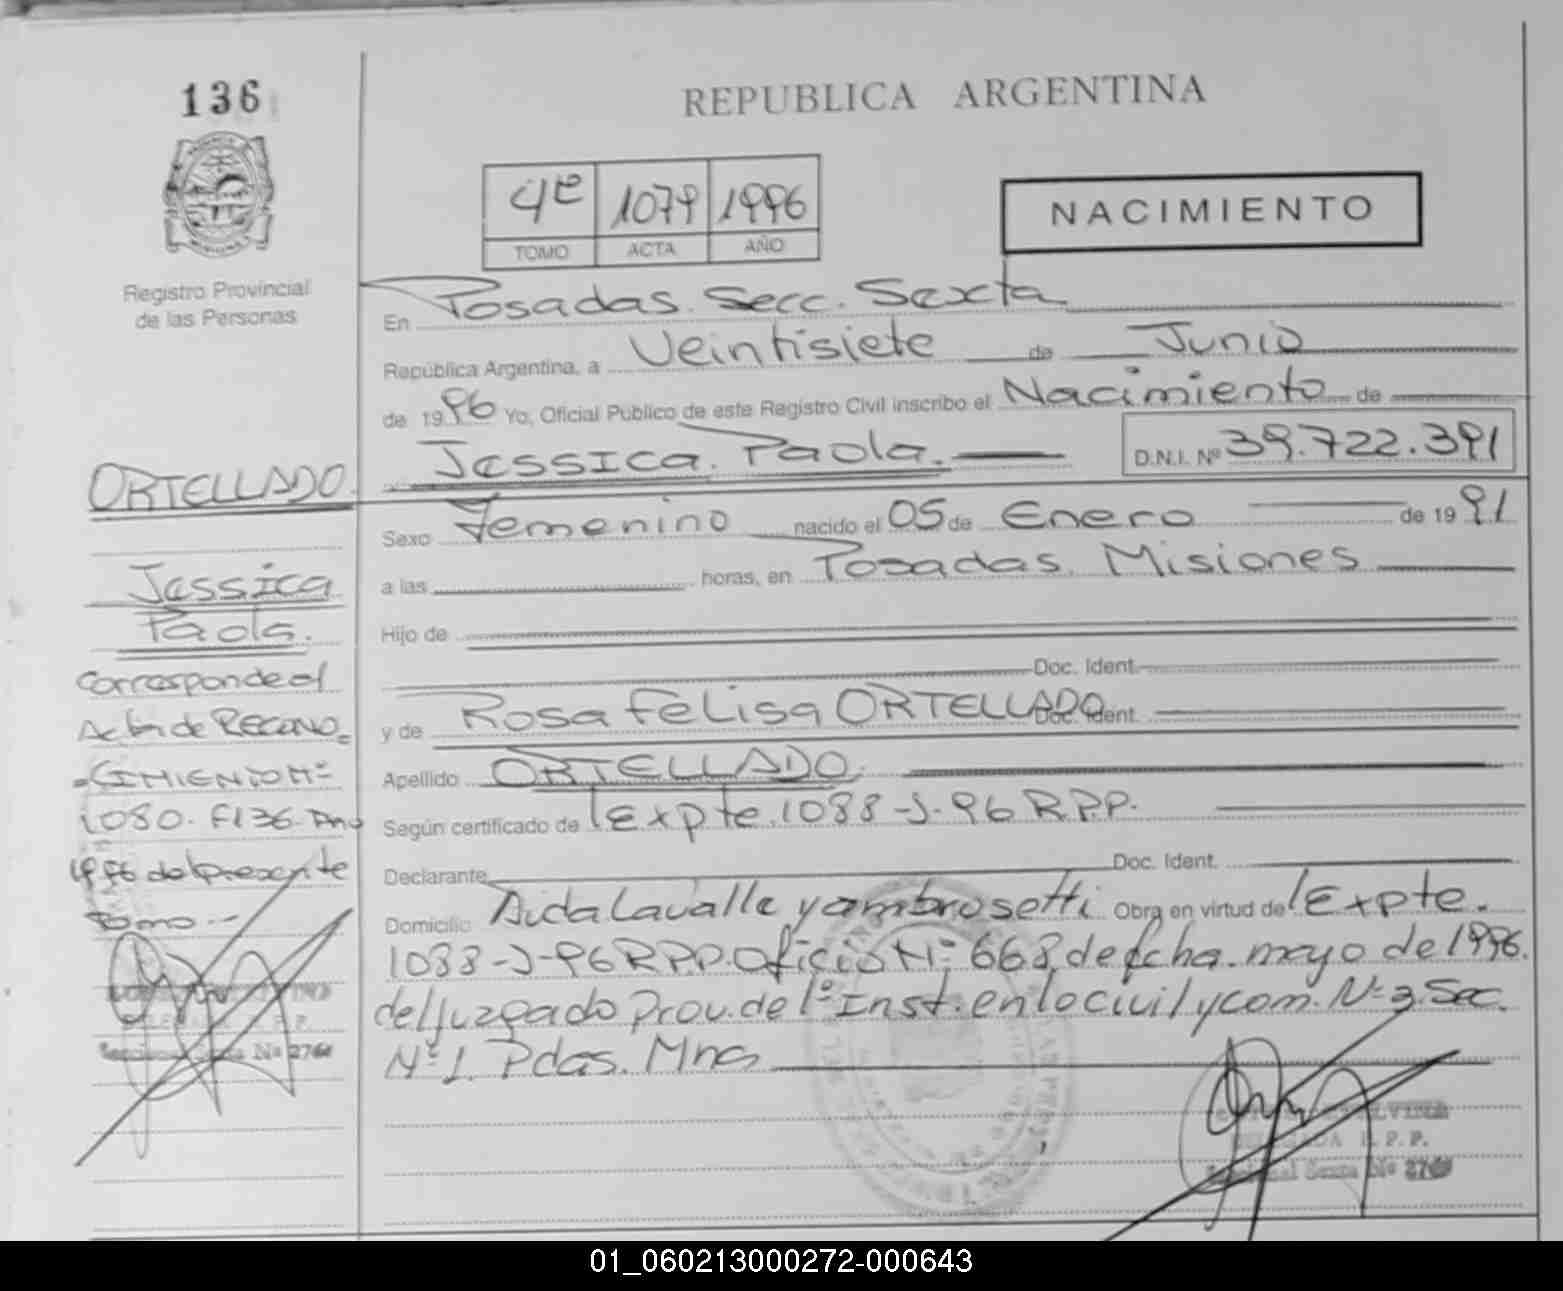 136
REPUBLICA ARGENTINA
4º 1079 1996
TOMO ACTA AÑO
NACIMIENTO
Registro Provincial
de las Personas
En Posadas. Secc. Sexta
República Argentina, a Veintisiete de Junio
de 1996 Yo, Oficial Público de este Registro Civil inscribo el Nacimiento de
Jessica. Paola. D.N.I. Nº 39.722.391
Sexo Femenino nacido el 05 de Enero de 1991
a las horas, en Posadas. Misiones
Hijo de
Doc. Ident.
y de Rosa Felisa ORTELLADO Doc. Ident.
Apellido ORTELLADO.
Según certificado de Expte. 1088-J-96 R.P.P.
Declarante Doc. Ident.
Domicilio Avda Lavalle y ambrosetti Obra en virtud de Expte.
1088-J-96 R.P.P. Oficio Nº 668, de fcha. mayo de 1996.
del Juzgado Prov. de 1º Inst. en lo civil y com. Nº 3. Sec.
Nº 1. Pdas. Mnes
ORTELLADO.
Jessica
Paola.
Corresponde al
Acta de RECONO=
=CIMIENTO Nº
1080. F136. Año
1996 del presente
Tomo.--
R. P. P.
Seccional Sexta Nº
DELEGADA R. P. P.
Seccional Sexta Nº
01_060213000272-000643